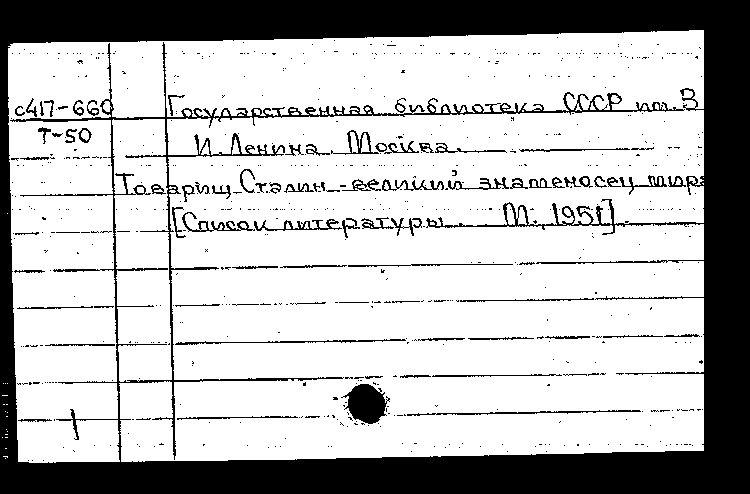 с417-660
Т-50
Государственная библиотека СССР им. В
И. Ленина. Москва.
Товарищ Сталин - великий знаменосец мира
[Список литературы. М., 1951].
1